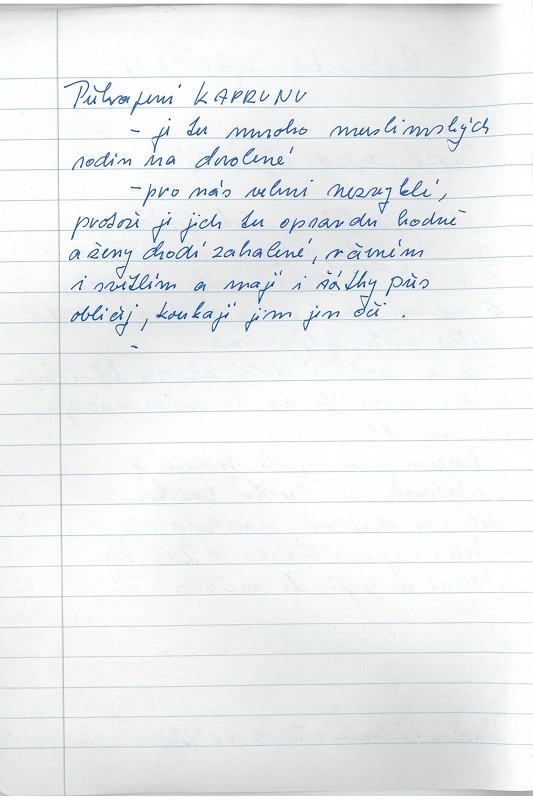 Překvapení KAPRUNU
- je tu mnoho muslimských
rodin na dovolené
- pro nás velmi nezvyklé,
protože je jich tu opravdu hodně
a ženy chodí zahalené, v černém
i světlém a mají i šátky přes
obličej, koukají jim jen oči.
-